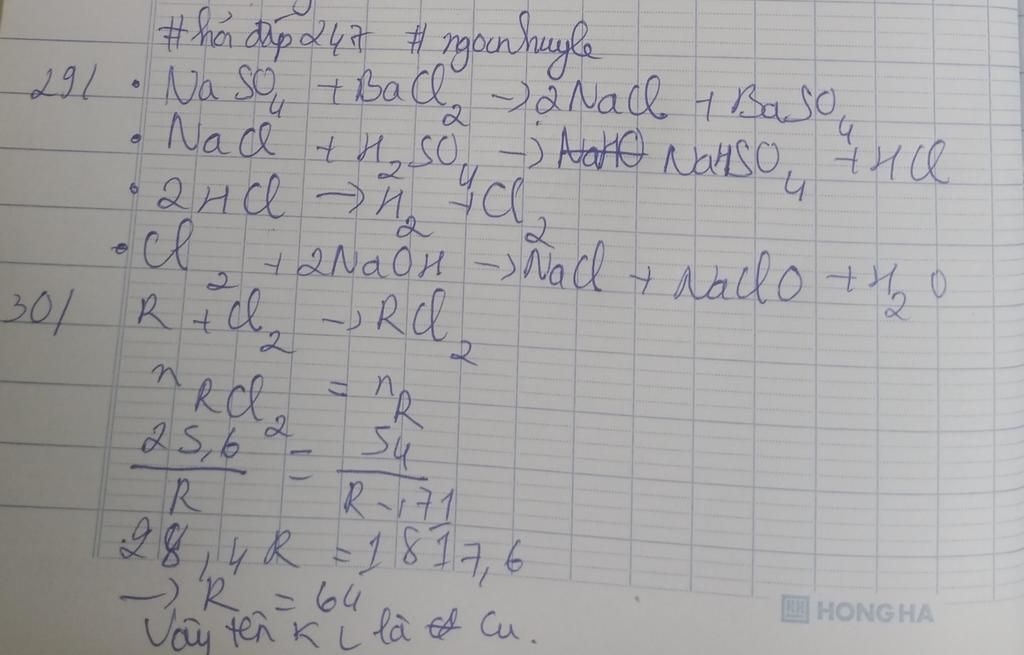 #hỏi đáp 247 #ngocnhuyle
29/ • NaSO₄ + BaCl₂ → 2NaCl + BaSO₄
• NaCl + H₂SO₄ → NaHSO₄ + HCl
• 2HCl → H₂ + Cl₂
• Cl₂ + 2NaOH → NaCl + NaClO + H₂O
30/ R + Cl₂ → RCl₂
n RCl₂ = n R
25,6 / R = 54 / R + 71
28,4R = 1817,6
→ R = 64
Vậy tên KL là Cu.
HONG HA